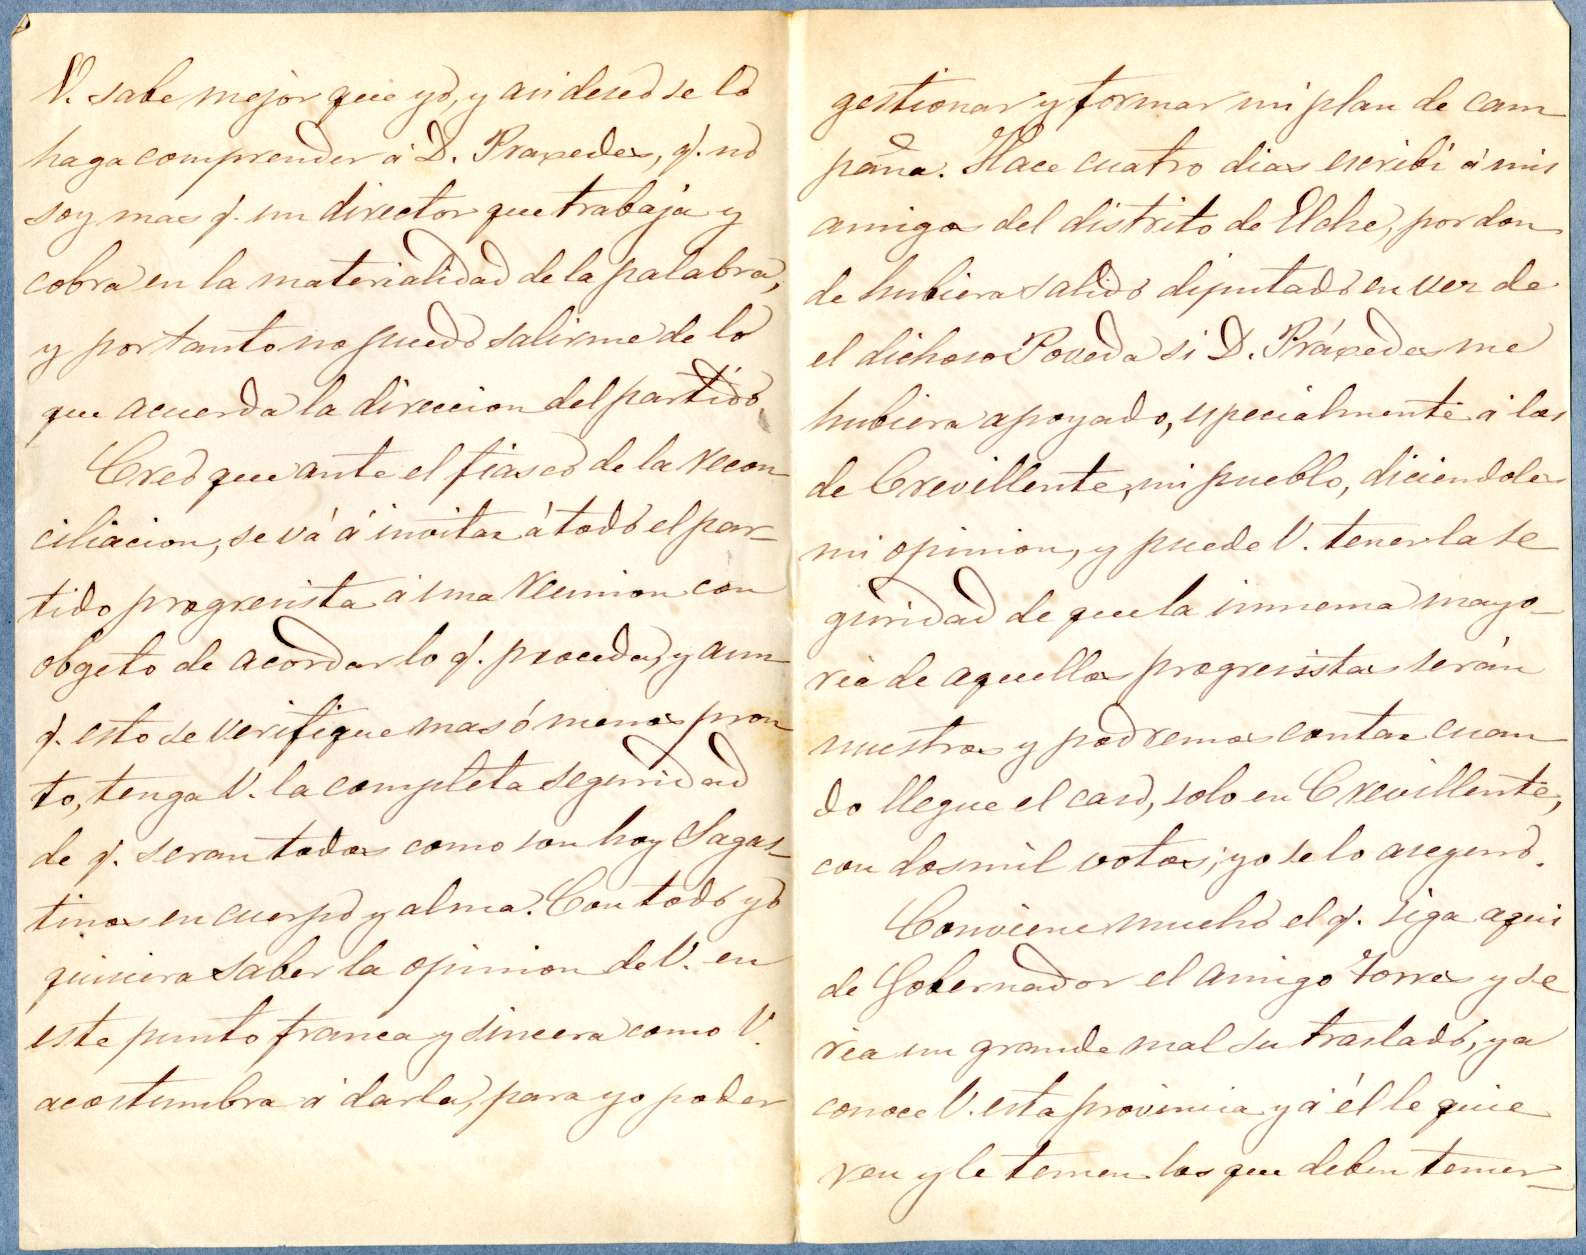 V. sabe mejor que yo, y asi deseo se lo
haga comprender á D. Praxedes, q. no
soy mas q. un director que trabaja y
cobra en la materialidad de la palabra,
y por tanto no puedo salirme de lo
que acuerda la direccion del partido.
Creo que ante el fiasco de la recon
ciliacion, se vá á invitar á todo el par-
tido progresista á una reunion con
obgeto de acordar lo q. proceda, y aun
q. esto se verifique mas ó menos pron
to, tenga V. la completa seguridad
de q. seran todos como son hoy Sagas-
tinos en cuerpo y alma. Con todo yo
quisiera saber la opinion de V. en
este punto franca y sincera como V.
acostumbra á darla, para yo poder
gestionar y formar mi plan de cam
paña. Hace cuatro dias escribí á mis
amigos del distrito de Elche, por don
de hubiera salido diputado en vez de
el dichoso Poveda si D. Práxedes me
hubiera apoyado, especialmente á los
de Crevillente, mi pueblo, diciendoles
mi opinion, y puede V. tener la se
guridad de que la inmensa mayo-
ria de aquellos progresistas serán
nuestros y podremos contar cuan
do llegue el caso, solo en Crevillente,
con dosmil votos; yo se lo aseguro.
Conviene mucho el q. siga aqui
de Gobernador el amigo Torres y se
ria un grande mal su traslado, ya
conoce V. esta provincia y á él le quie
ren y le temen los que deben temer-